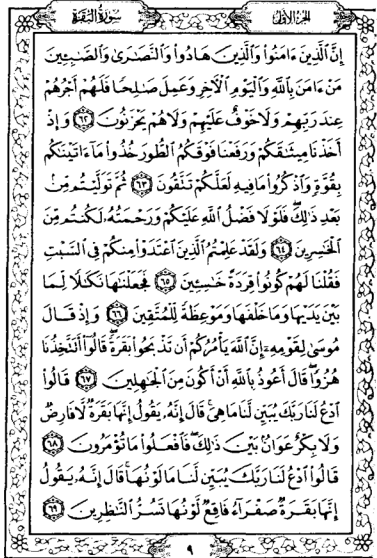 الجزء الأول
سورة البقرة
إِنَّ الَّذِينَ ءَامَنُوا وَالَّذِينَ هَادُوا وَالنَّصَارَىٰ وَالصَّابِئِينَ
مَنْ ءَامَنَ بِاللَّهِ وَالْيَوْمِ الْآخِرِ وَعَمِلَ صَالِحًا فَلَهُمْ أَجْرُهُمْ
عِندَ رَبِّهِمْ وَلَا خَوْفٌ عَلَيْهِمْ وَلَا هُمْ يَحْزَنُونَ ٦٢ وَإِذْ
أَخَذْنَا مِيثَاقَكُمْ وَرَفَعْنَا فَوْقَكُمُ الطُّورَ خُذُوا مَا ءَاتَيْنَاكُم
بِقُوَّةٍ وَاذْكُرُوا مَا فِيهِ لَعَلَّكُمْ تَتَّقُونَ ٦٣ ثُمَّ تَوَلَّيْتُم مِّن
بَعْدِ ذَٰلِكَ ۖ فَلَوْلَا فَضْلُ اللَّهِ عَلَيْكُمْ وَرَحْمَتُهُ لَكُنتُم مِّنَ
الْخَاسِرِينَ ٦٤ وَلَقَدْ عَلِمْتُمُ الَّذِينَ اعْتَدَوْا مِنكُمْ فِي السَّبْتِ
فَقُلْنَا لَهُمْ كُونُوا قِرَدَةً خَاسِئِينَ ٦٥ فَجَعَلْنَاهَا نَكَالًا لِّمَا
بَيْنَ يَدَيْهَا وَمَا خَلْفَهَا وَمَوْعِظَةً لِّلْمُتَّقِينَ ٦٦ وَإِذْ قَالَ
مُوسَىٰ لِقَوْمِهِ إِنَّ اللَّهَ يَأْمُرُكُمْ أَن تَذْبَحُوا بَقَرَةً ۖ قَالُوا أَتَتَّخِذُنَا
هُزُوًا ۖ قَالَ أَعُوذُ بِاللَّهِ أَنْ أَكُونَ مِنَ الْجَاهِلِينَ ٦٧ قَالُوا
ادْعُ لَنَا رَبَّكَ يُبَيِّن لَّنَا مَا هِيَ ۚ قَالَ إِنَّهُ يَقُولُ إِنَّهَا بَقَرَةٌ لَّا فَارِضٌ
وَلَا بِكْرٌ عَوَانٌ بَيْنَ ذَٰلِكَ ۖ فَافْعَلُوا مَا تُؤْمَرُونَ ٦٨
قَالُوا ادْعُ لَنَا رَبَّكَ يُبَيِّن لَّنَا مَا لَوْنُهَا ۚ قَالَ إِنَّهُ يَقُولُ
إِنَّهَا بَقَرَةٌ صَفْرَاءُ فَاقِعٌ لَّوْنُهَا تَسُرُّ النَّاظِرِينَ ٦٩
٩